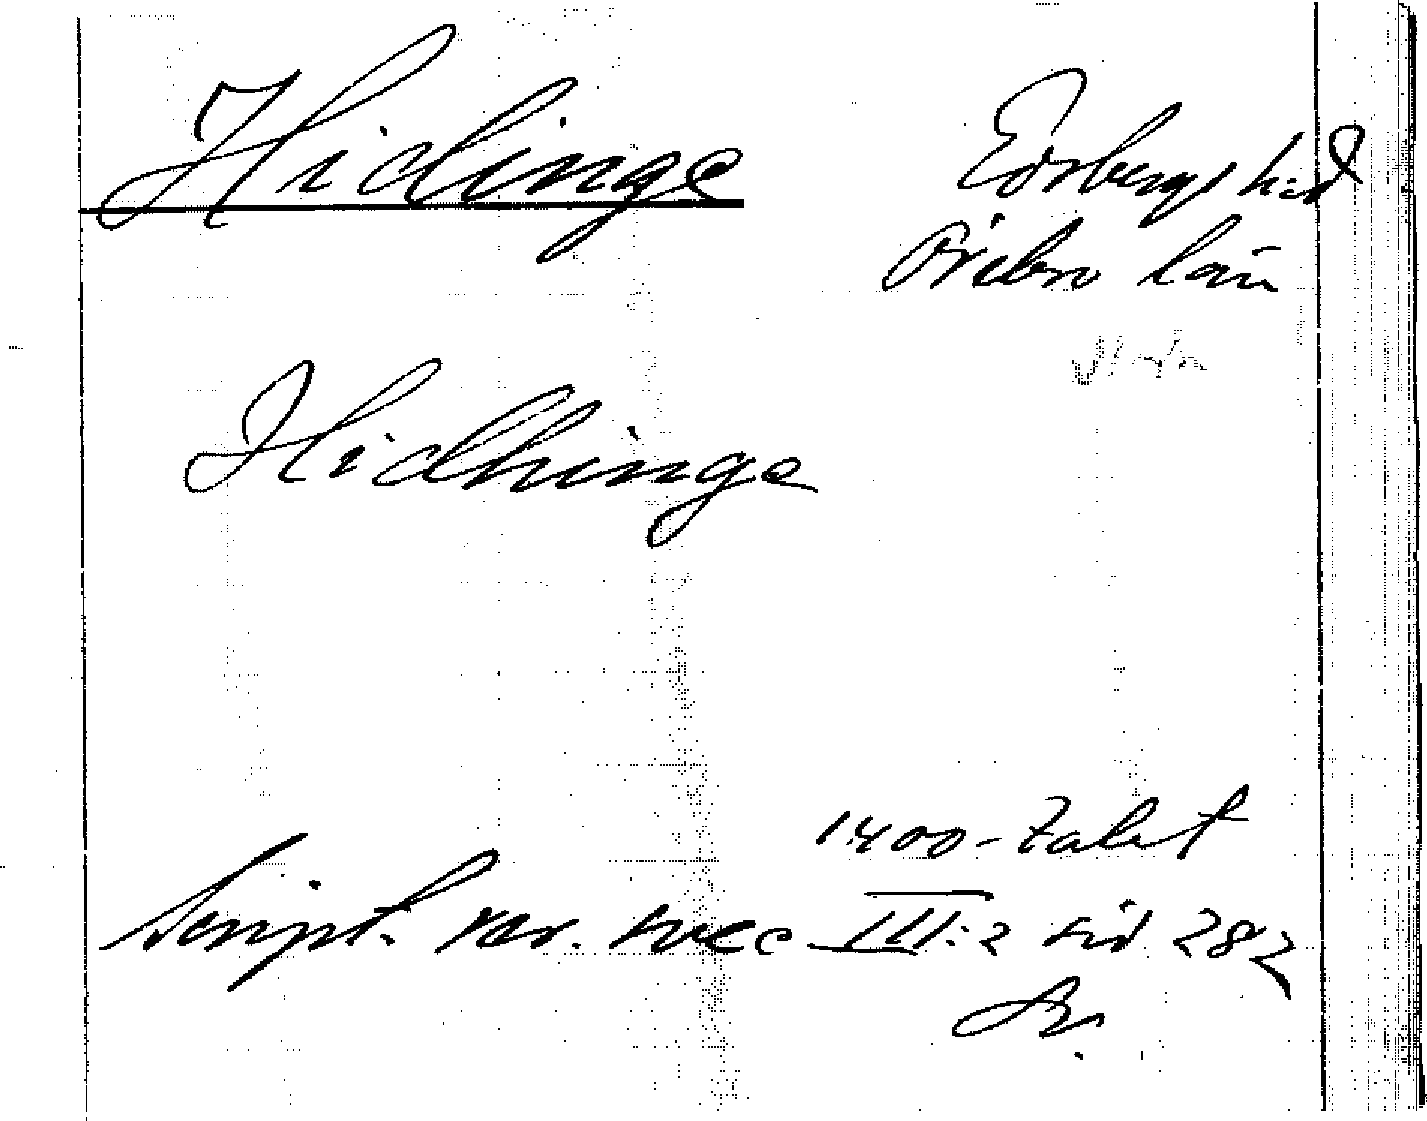 Hidinge
Edsbergs h:d
Örebro län
Hidhinge
1400-talet
Script. rer. svec III:2 sid 282